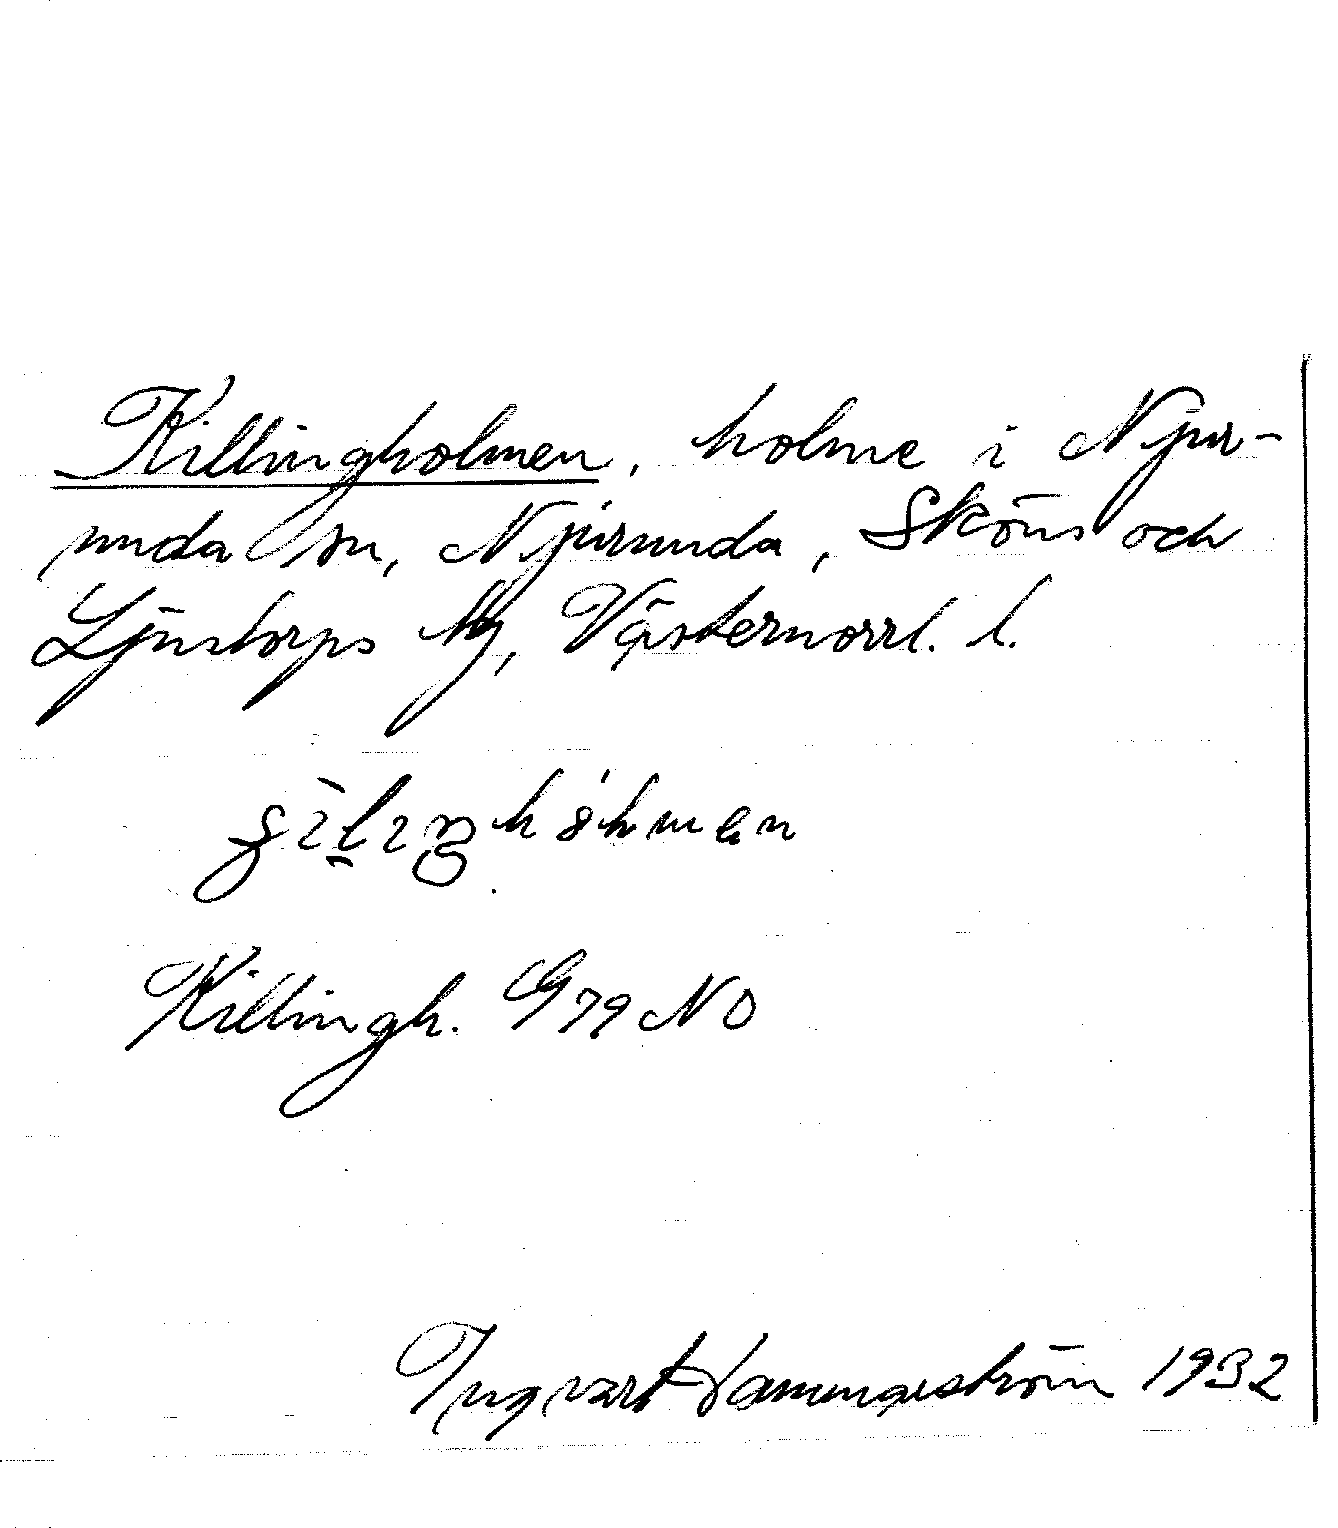 Killingholmen, holme i Njur-
unda sn, Njurunda, Sköns och
Ljustorps tlg, Västernorrl. l.
Killingh. G79 NO
Ingvart 1932